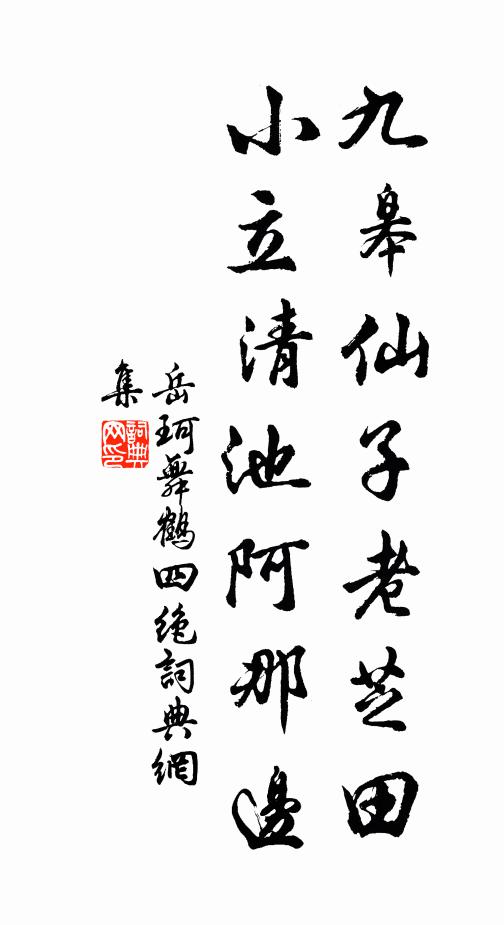 九皋仙子老芝田
小立清池阿那邊
岳珂舞鶴四絶詞典網
集
詞典
网印